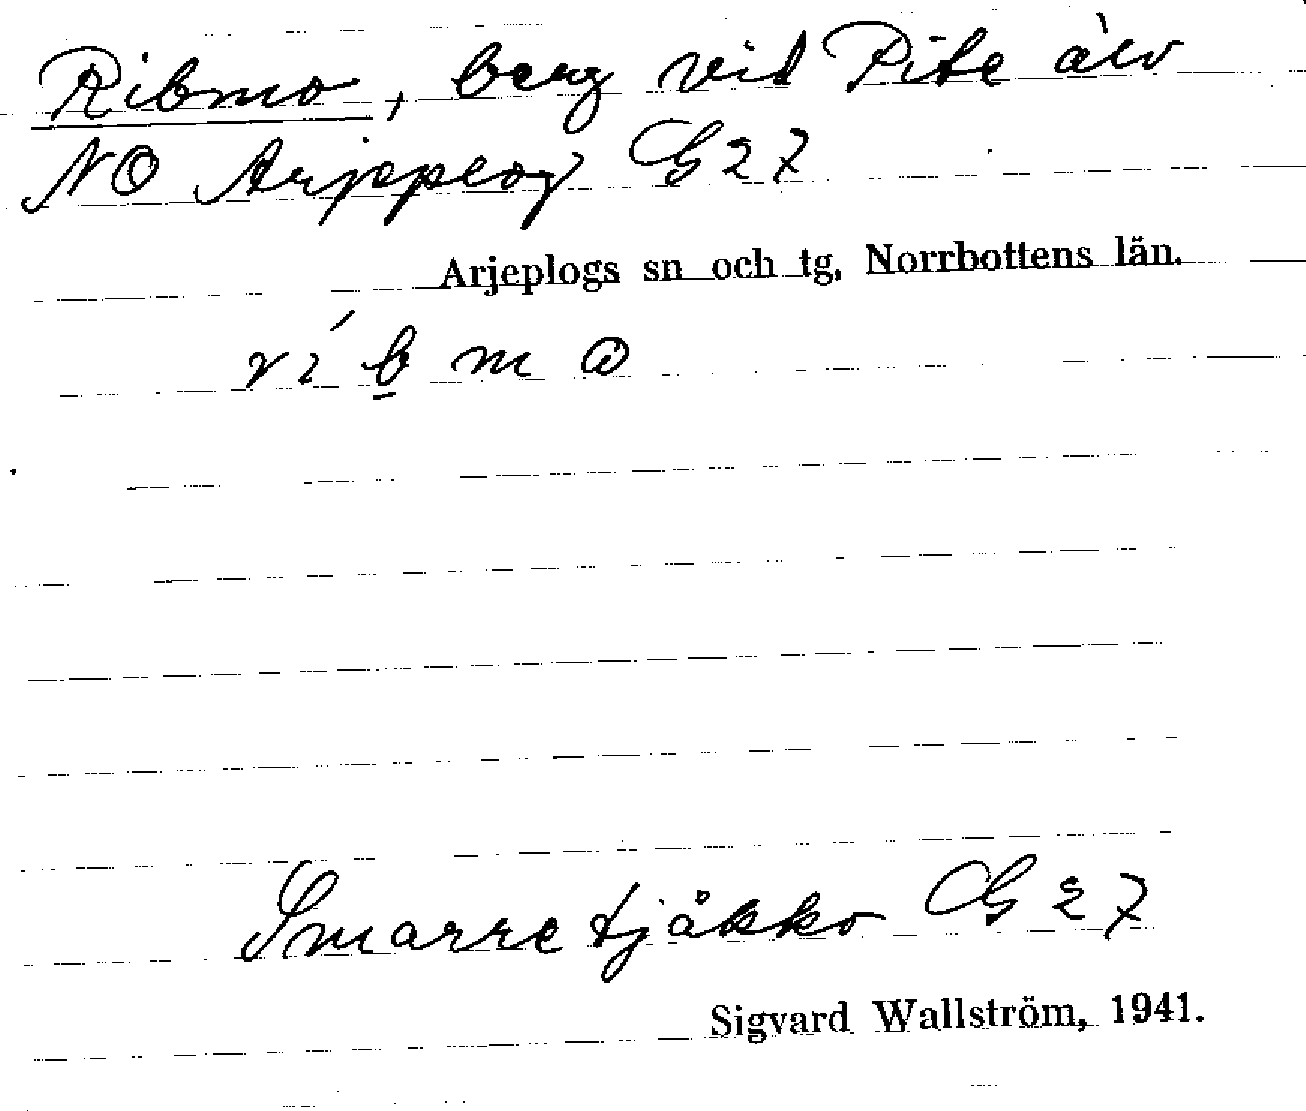 Ribmo, berg vid Pite älv
NO Arjeplog G27
Arjeplogs sn och tg, Norrbottens län.
Smarretjåkko G27
Sigvard Wallström, 1941.